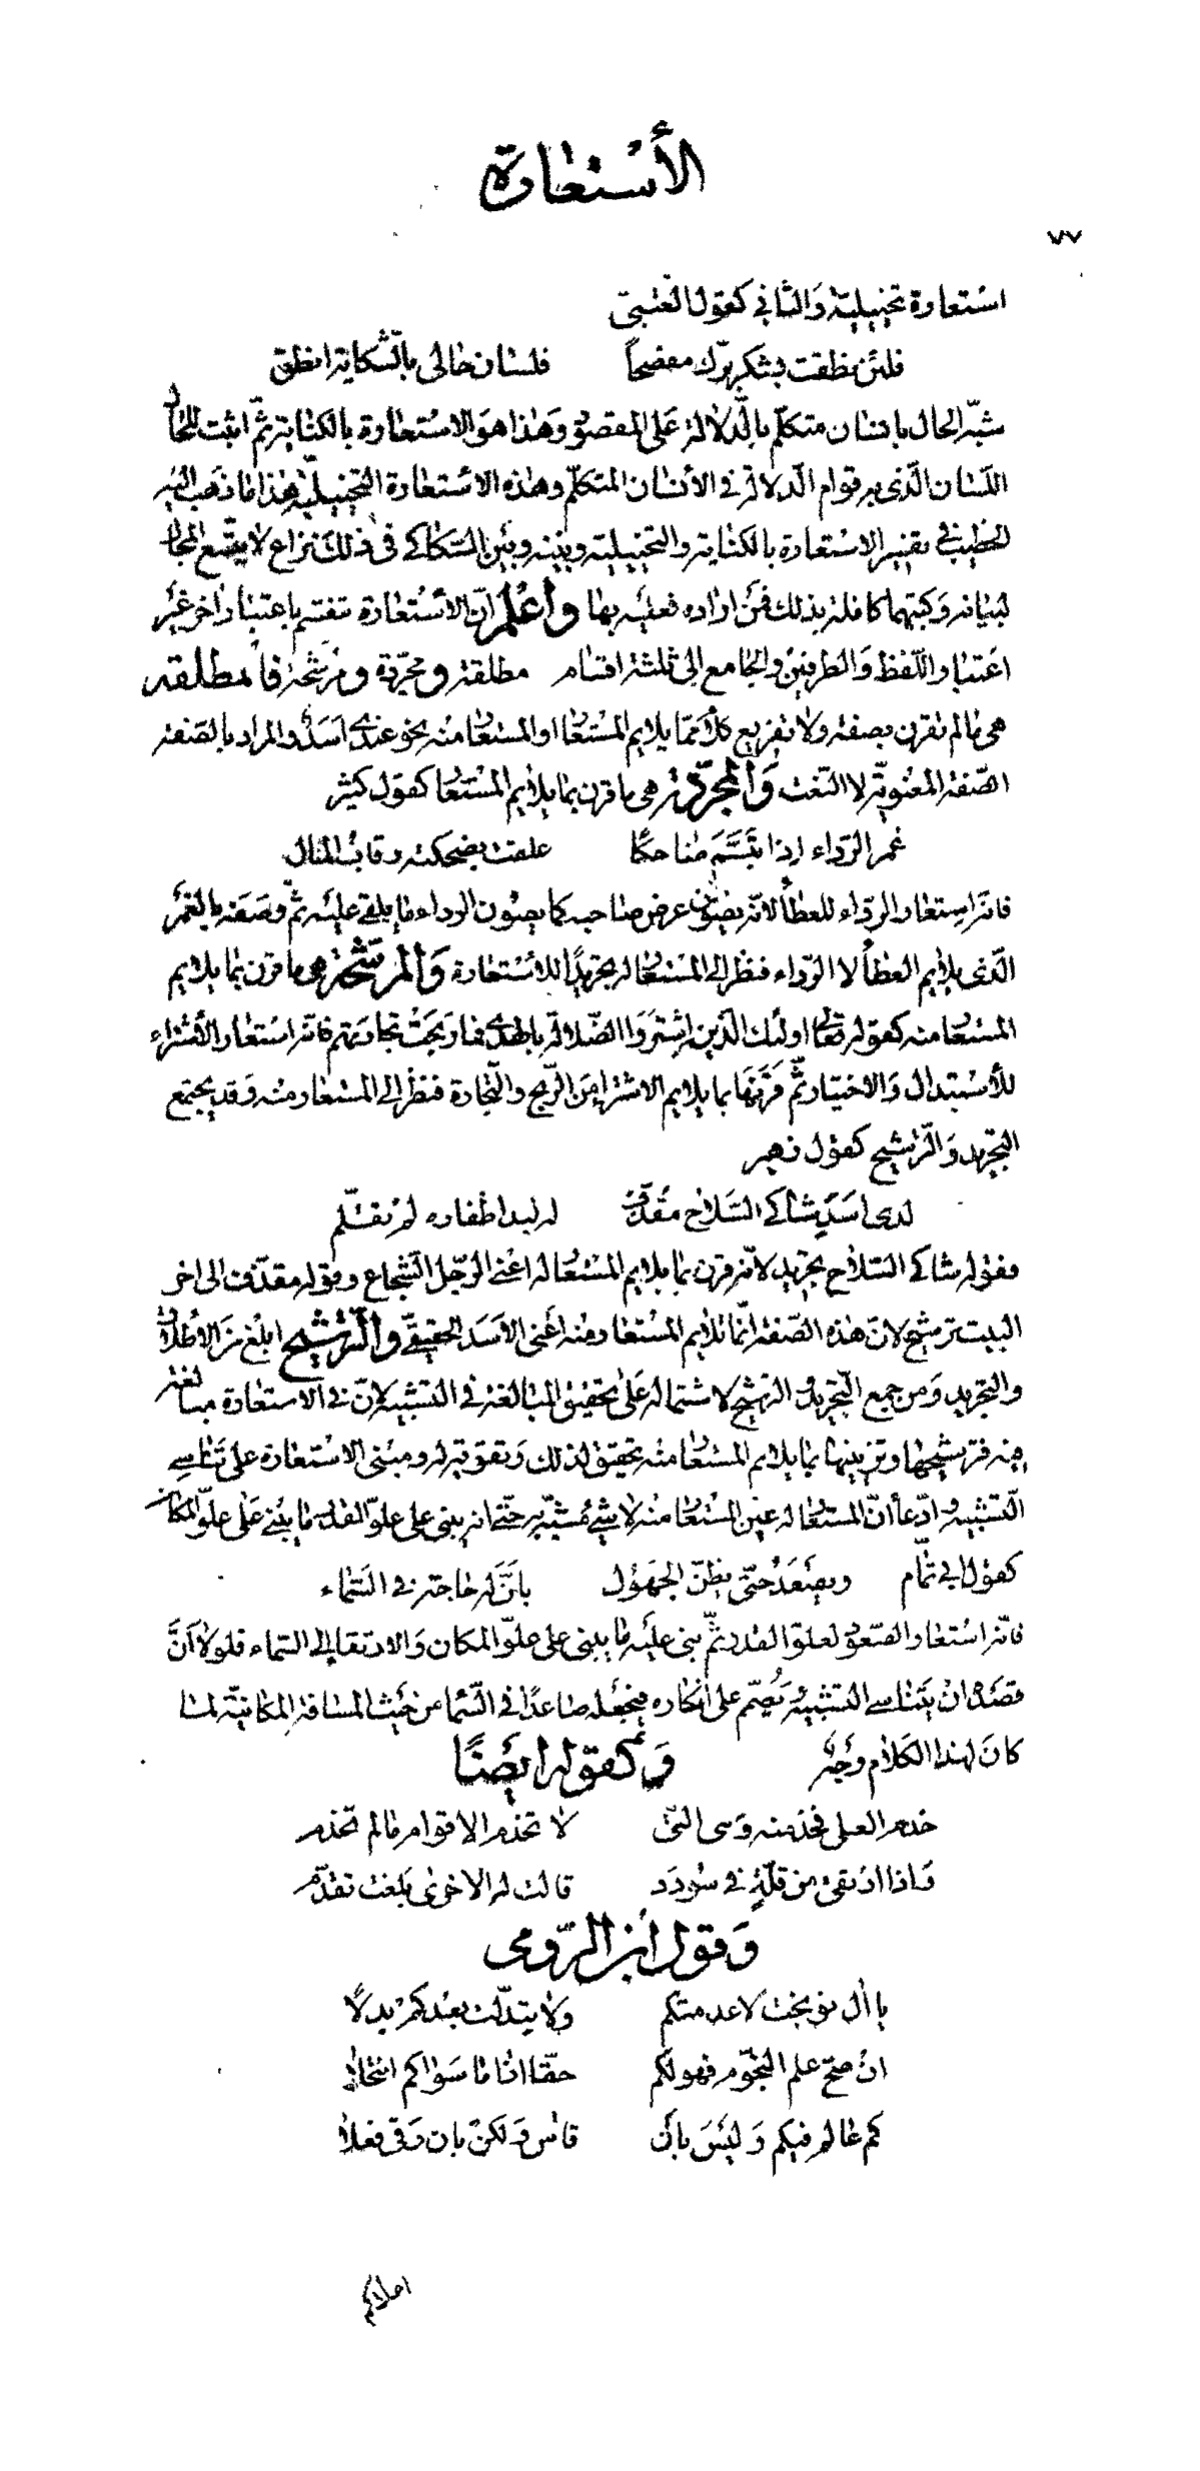 الأستعارة
٧٧
استعارة تخييلية والثانى كقول العتبىّ
فلئن نطقت بشكر برّك مفصحاً فلسان حالى بالشّكاية انطق
شبّه الحال بانسان متكلّم بالدّلالة على المقصود وهذا هو الاستعارة بالكناية ثمّ اثبت للحال
اللّسان الّذى به قوام الدّلالة فى الأنسان المتكلّم وهذه الاستعارة التخييليّة هذا ما ذهب اليه
الخطيب فى تفسير الاستعارة بالكناية والتخييلية وبينه وبين السّكاكى فى ذلك نزاع لا يتّسع المجال
لبيانه وكتبهما كافلة بذلك فمن اراده فعليه بها واعلم انّ الأستعارة تنقسم باعتبار اخر غير
اعتبار اللّفظ والطرفين والجامع الى ثلثة اقسام مطلقة ومجرّدة ومرشّحة فالمطلقة
هى ما لم تقرن بصفة ولا تفريع كلام ممّا يلايم المستعار له او المستعار منه نحو عندى اسد والمراد بالصّفة
الصّفة المعنويّة لا النّعت والمجرّدة هى ما قرن بما يلايم المستعار له كقول كثير
غمر الرّداء اذا تبسّم ضاحكاً علقت بضحكته رقاب المال
فانّه استعار الرّداء للعطاء لانّه يصون عرض صاحبه كما يصون الرداء ما يلقى عليه ثمّ وصفه بالغمر
الّذى يلايم العطاء لا الرّداء فنظر الى المستعار له تجريدًا للأستعارة والمرشّحة هى ما قرن بما يلايم
المستعار منه كقوله تعالى اولئك الّذين اشتروا الضّلالة بالهدى فما ربحت تجارتهم فانّه استعار الأشتراء
للأستبدال والاختيار ثمّ قرنها بما يلايم الاشتراء من الرّبح والتّجارة فنظر الى المستعار منه وقد يجتمع
التجريد والتّرشيح كقول زهير
لدى اسد شاكى السّلاح مقذّف له لبد اظفاره لم تقلّم
فقوله شاكى السّلاح تجريد لانّه قرن بما يلايم المستعار له اعنى الرّجل الشّجاع وقوله مقذّف الى اخر
البيت ترشيح لانّ هذه الصّفة انّما تلايم المستعار منه اعنى الأسد الحقيقى والتّرشيح ابلغ من الأطلاق
والتجريد ومن جمع التّجريد والترشيح لاشتماله على تحقيق المبالغة فى التشبيه لانّ فى الاستعارة مبالغة
فيه فترشيحها وتزيينها بما يلايم المستعار منه تحقيق لذلك وتقوية له ومبنى الاستعارة على تناسى
التّشبيه وادّعاء انّ المستعار له عين المستعار منه لا شىء مشبّه به حتّى انه يبنى على علوّ القدر ما يبنى على علوّ المكان
كقول ابى تمّام ويصعد حتّى يظنّ الجهول بانّ له حاجة فى السّماء
فانّه استعار الصّعود لعلوّ القدر ثمّ بنى عليه ما يبنى على علوّ المكان والارتقاء الى السّماء فلولا انّ
قصده ان يتناسى التشبيه ويصمّم على انكاره فيجعله صاعدًا فى السّماء من حيث المسافة المكانيّة لما
كان لهذا الكلام وجه وكقوله ايضًا
خدم العلى فخدمنه وهى الّتى لا تخدم الاقوام ما لم تخدم
واذا ارتقى من قلّة فى سودد قالت له الاخرى بلغت تقدّم
وقول ابن الرّومى
يا ال نوبخت لا عدمتكم ولا تبدّلت بعدكم بدلًا
ان صحّ علم النجّوم فهو لكم حقّا اذا ما سواكم انتحلا
كم عالم فيكم وليس بأن قاس ولكن بان رقى فعلا